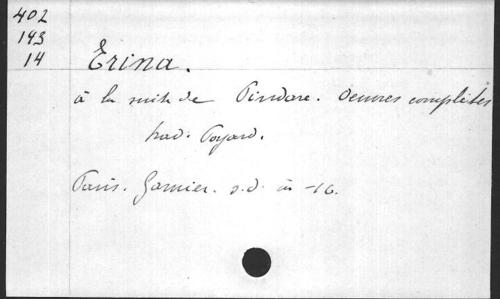 402
143
14
Erina.
à la suite de Pindare. Oeuvres complètes
trad. Poyard.
Paris. Garnier. s.d. in-16.